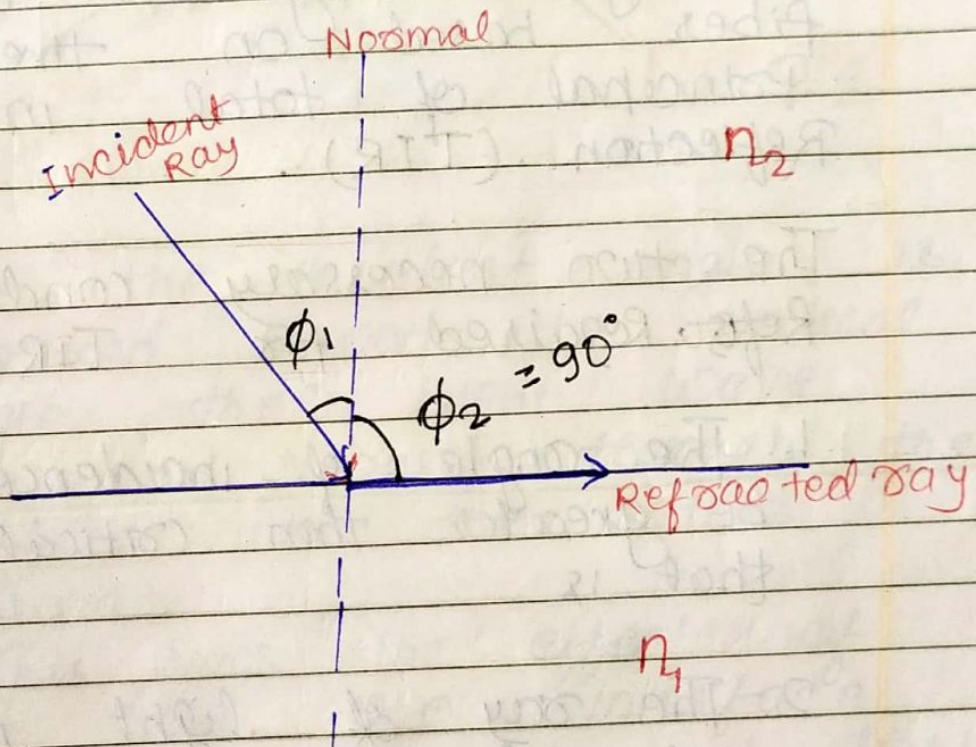 Normal
Incident
Ray
n₂
ϕ₁
ϕ₂ = 90°
Refracted ray
n₁